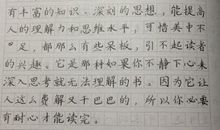 有丰富的知识、深刻的思想，能提高
人的理解力和思维水平，可惜美中不
足，都那么有些呆板，引不起读者
的兴趣。它是那种如果你不静下心来
深入思考就无法理解的书。因为它让
人这么费解又干巴巴的，所以你必要
有耐心才能读完。